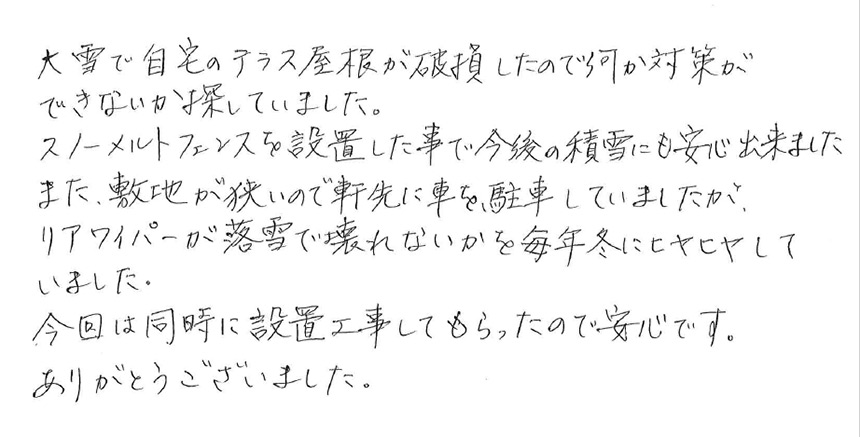 大雪で自宅のテラス屋根が破損したので何か対策が
できないか探していました。
スノーメルトフェンスを設置した事で今後の積雪にも安心出来ました
また、敷地が狭いので軒先に車を駐車していましたが、
リアワイパーが落雪で壊れないかを毎年冬にヒヤヒヤして
いました。
今回は同時に設置工事してもらったので安心です。
ありがとうございました。